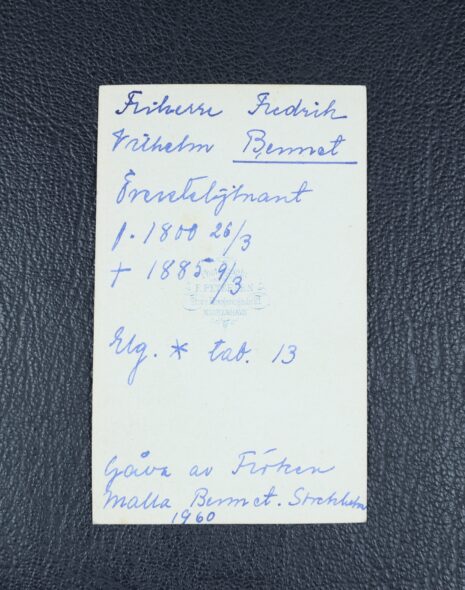 Friherre Fredrik
Vilhelm Bennet
Överstelöjtnant
f. 1800 26/3
+ 1885 9/3
KJØBENHAVN
Elg. * tab. 13
Gåva av Fröken
Malla Bennet. Stockholm
1960